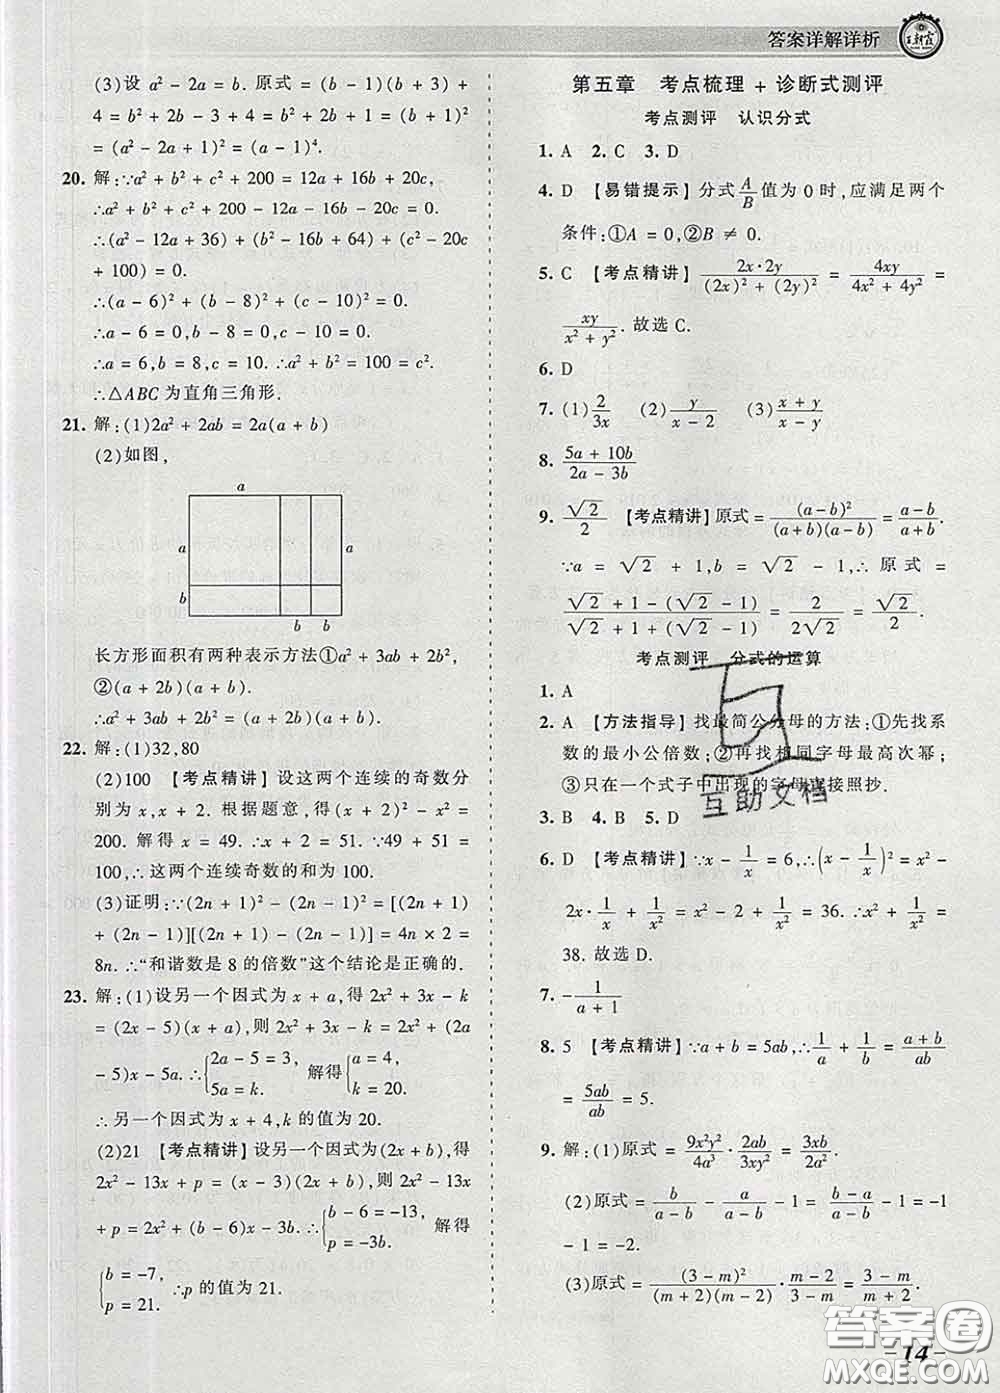 答案详解详析
王朝霞
(3)设 a² − 2a = b. 原式 = (b − 1)(b + 3) +
4 = b² + 2b − 3 + 4 = b² + 2b + 1 = (b + 1)²
= (a² − 2a + 1)² = (a − 1)⁴.
20. 解:∵a² + b² + c² + 200 = 12a + 16b + 20c,
∴a² + b² + c² + 200 − 12a − 16b − 20c = 0.
∴(a² − 12a + 36) + (b² − 16b + 64) + (c² − 20c
+ 100) = 0.
∴(a − 6)² + (b − 8)² + (c − 10)² = 0.
∴a − 6 = 0,b − 8 = 0,c − 10 = 0.
∴a = 6,b = 8,c = 10. ∴a² + b² = 100 = c².
∴△ABC 为直角三角形.
21. 解:(1)2a² + 2ab = 2a(a + b)
(2)如图,
a
a a
b
b b
长方形面积有两种表示方法①a² + 3ab + 2b²,
②(a + 2b)(a + b).
∴a² + 3ab + 2b² = (a + 2b)(a + b).
22. 解:(1)32,80
(2)100 【考点精讲】设这两个连续的奇数分
别为 x,x + 2. 根据题意,得(x + 2)² − x² =
200. 解得 x = 49. ∴x + 2 = 51. ∵49 + 51 =
100,∴这两个连续奇数的和为 100.
(3)证明:∵(2n + 1)² − (2n − 1)² = [(2n + 1)
+ (2n − 1)][(2n + 1) − (2n − 1)] = 4n × 2 =
8n. ∴“和谐数是 8 的倍数”这个结论是正确的.
23. 解:(1)设另一个因式为 x + a,得 2x² + 3x − k
= (2x − 5)(x + a),则 2x² + 3x − k = 2x² + (2a
− 5)x − 5a. ∴{2a − 5 = 3, 5a = k. 解得{a = 4, k = 20.
∴另一个因式为 x + 4,k 的值为 20.
(2)21 【考点精讲】设另一个因式为(2x + b),得
2x² − 13x + p = (x − 3)(2x + b),则 2x² − 13x
+ p = 2x² + (b − 6)x − 3b. ∴{b − 6 = −13, p = −3b. 解得
{b = −7, p = 21. ∴p 的值为 21.
第五章 考点梳理 + 诊断式测评
考点测评 认识分式
1. A 2. C 3. D
4. D 【易错提示】分式 A/B 值为 0 时,应满足两个
条件:①A = 0,②B ≠ 0.
5. C 【考点精讲】 2x·2y/((2x)² + (2y)²) = 4xy/(4x² + 4y²) =
xy/(x² + y²). 故选 C.
6. D
7. (1) 2/(3x) (2) y/(x − 2) (3) (x + y)/(x − y)
8. (5a + 10b)/(2a − 3b)
9. √2/2 【考点精讲】原式 = (a − b)²/((a + b)(a − b)) = (a − b)/(a + b).
∵a = √2 + 1,b = √2 − 1,∴原式 =
(√2 + 1 − (√2 − 1))/(√2 + 1 + √2 − 1) = 2/(2√2) = √2/2.
考点测评 分式的运算
1. A
2. A 【方法指导】找最简公分母的方法:①先找系
数的最小公倍数;②再找相同字母最高次幂;
③只在一个式子中出现的字母连接照抄.
3. B 4. B 5. D
6. D 【考点精讲】∵x − 1/x = 6,∴(x − 1/x)² = x² −
2x·1/x + 1/x² = x² − 2 + 1/x² = 36. ∴x² + 1/x² =
38. 故选 D.
7. −1/(a + 1)
8. 5 【考点精讲】∵a + b = 5ab,∴1/a + 1/b = (a + b)/ab =
5ab/ab = 5.
9. 解:(1)原式 = 9x²y²/4a³ · 2ab/3xy² = 3xb/2a².
(2)原式 = b/(b − a) − a/(b − a) − 1 = (b − a)/(b − a) − 1 = −1
− 1 = −2.
(3)原式 = (3 − m)²/((m + 2)(m − 2)) · (m − 2)/(3 − m) = (3 − m)/(m + 2).
互助文档
答案圈
MXQE.COM
− 14 −